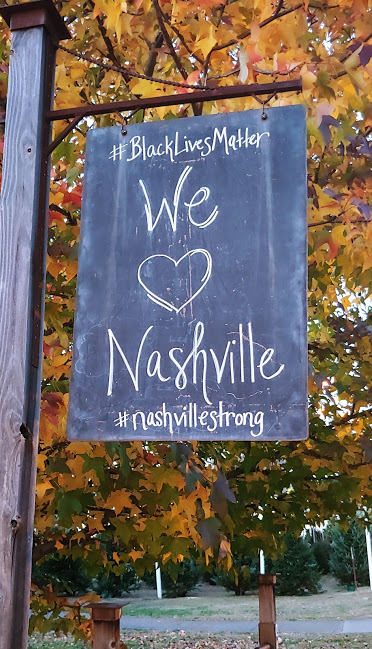 #BlackLivesMatter
We
♡
Nashville
#nashvillestrong